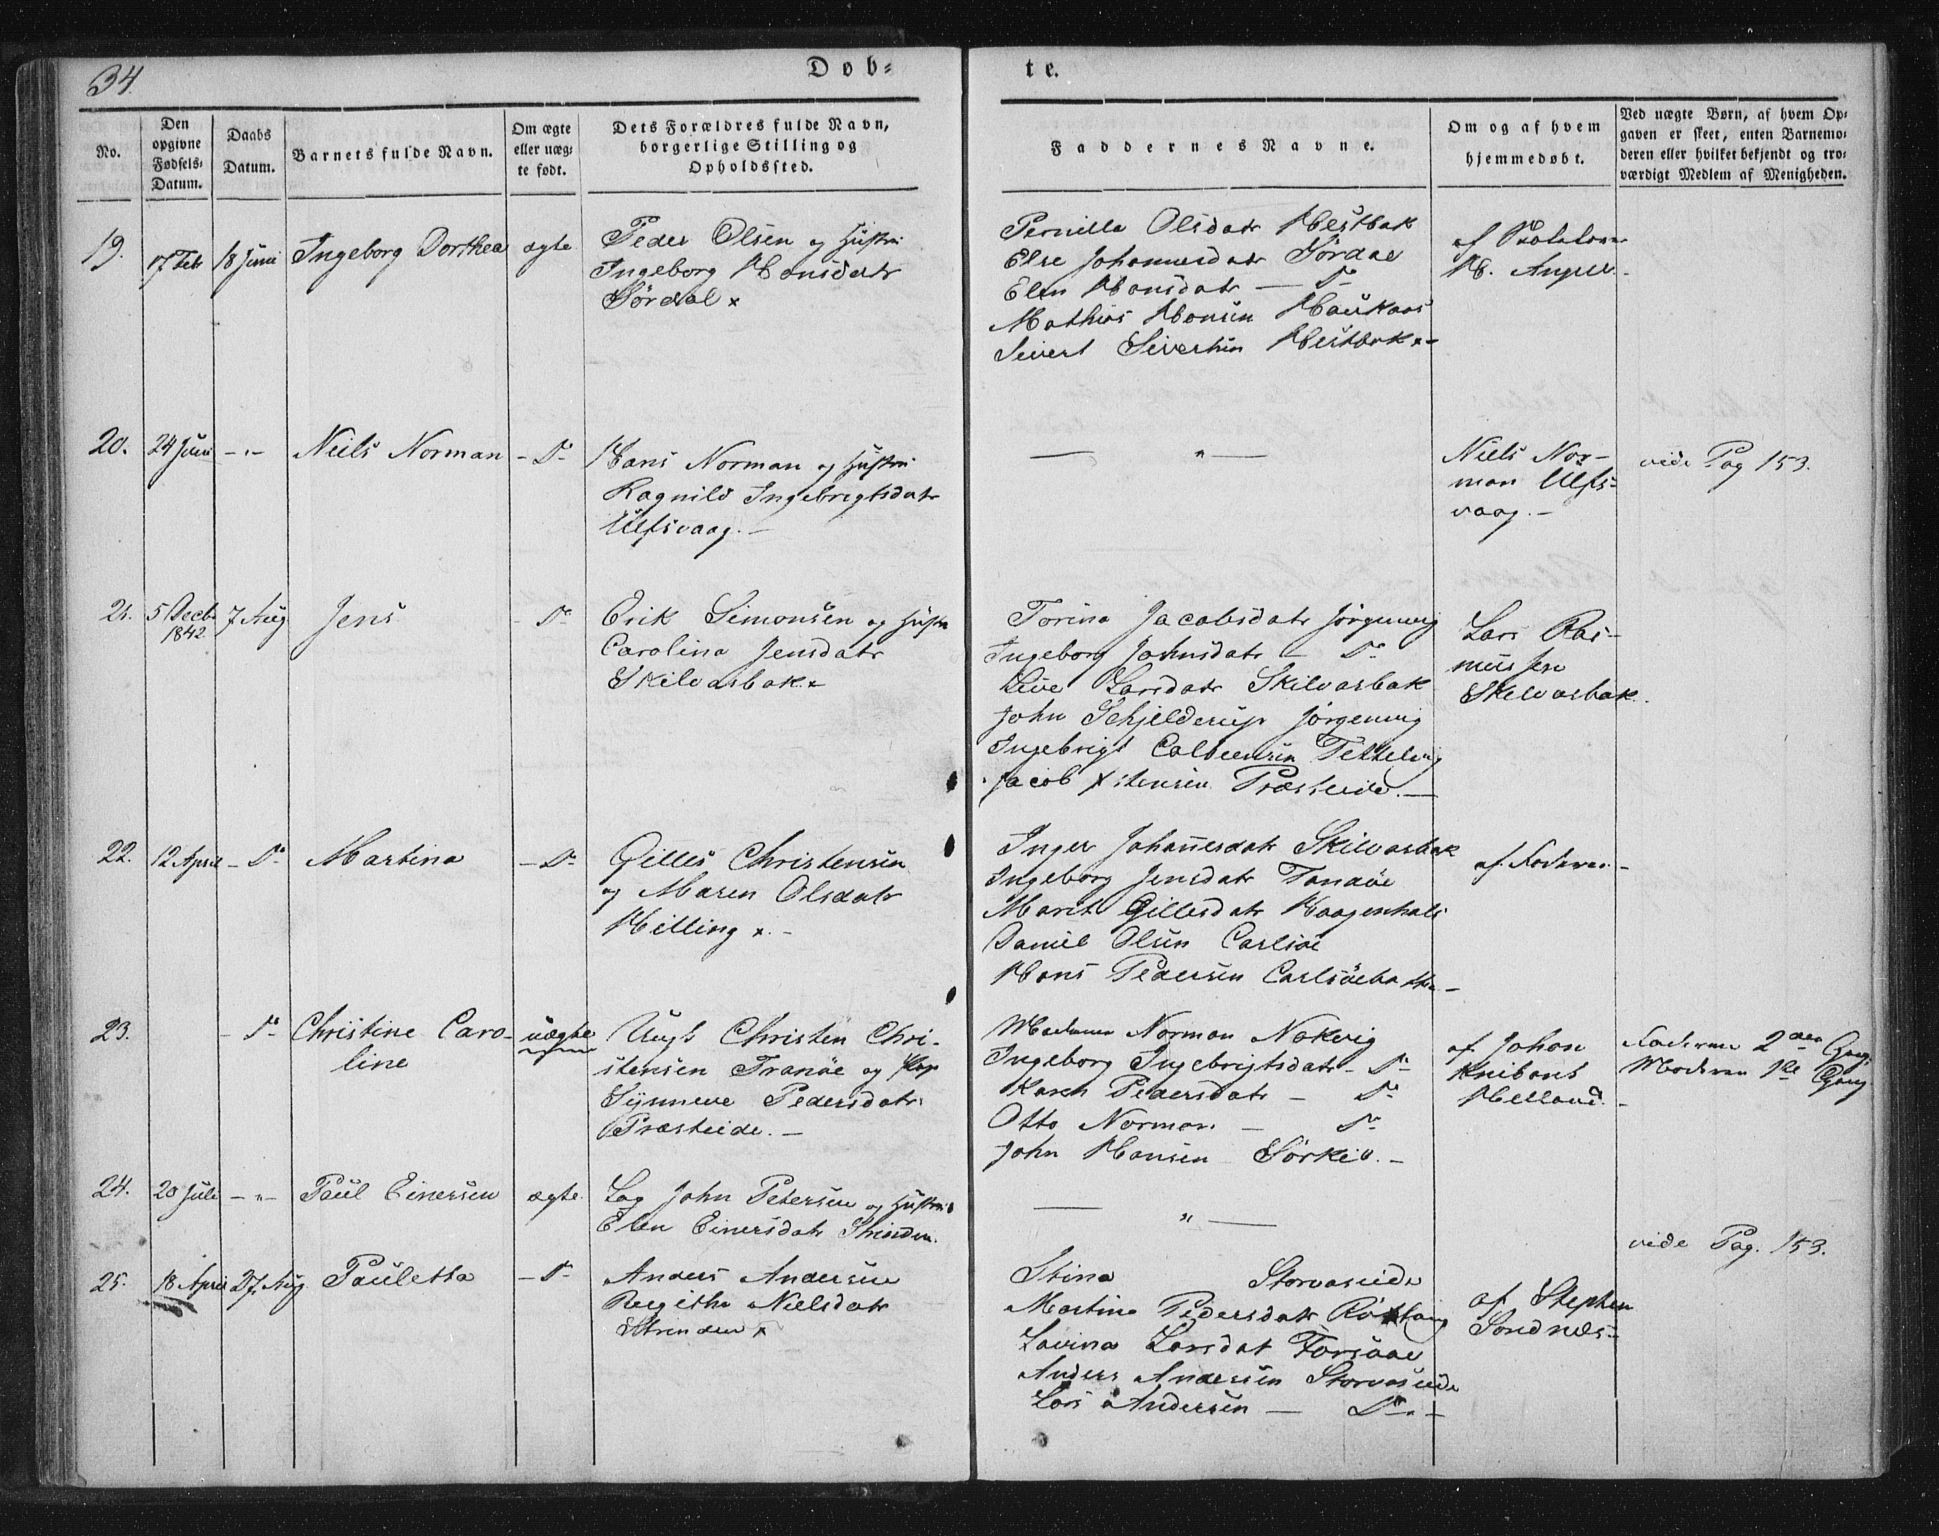 34.
Døb-
te.
No.
Den opgivne Fødsels-Datum.
Daabs Datum.
Barnets fulde Navn.
Om ægte eller uæg-te født.
Dets Forældres fulde Navn, borgerlige Stilling og Opholdssted.
Faddernes Navne.
Om og af hvem hjemmedøbt.
Ved uægte Børn, af hvem Op-gaven er skeet, enten Barnemo-deren eller hvilket bekjendt og tro-værdigt Medlem af Menigheden.
19. 17 Feb 18 Juni Ingeborg Dorthea ægte
Peder Olsen og Hustru
Ingeborg Hansdatr
Sørdal x
Pernilla Olsdatr Hestbak
Else Johannesdatr Sørdal
Elen Hansdatr — Do
Mathias Hansen Haukaas
Sivert Sivertsen Hestbak x-
af
H. Anger.-
20. 24 Juni -"- Niels Norman - Do
Hans Norman og Hustru
Ragnild Ingebrigtsdatr
Ulfsvaag. -
— " —
Niels Nor-
man Ulfs-
vaag. -
vide Pag 153.
21. 5 Decb. 1842 7 Aug Jens - Do
Erik Simonsen og Hustru
Carolina Jensdatr
Skilvasbak x
Torina Jacobsdatr Jørgenvig
Ingeborg Johnsdatr - Do
Live Larsdatr Skilvasbak
John Schjelderup Jørgenvig
Ingebrigt Tettelvig
Jacob Xstensen Præsteide. —
Lars Ras-
mussen
Skilvasbak.
22. 12 April - Do Martina - Do
Gilles Christensen
og Maren Olsdatr
Helling x. -
Inger Johannesdatr Skilvasbak
Ingeborg Jensdatr Tandøe
Marit Gillesdatr Kaagenhals
Daniel Olsen Carlsøe
Hans Pedersen Carlsøebatten -
af Faderen -
23. - Do Christine Caro-
line
uægte
Ungk Christen Chri-
stensen Tranøe og Pige
Synneve Pedersdatr
Præsteide. -
Madame Norman Nakvig
Ingeborg Ingebrigtsdatr - Do
Karen Pedersdatr - Do
Otto Norman - Do
John Hansen Sørkil. -
af Johan
Knibant
Helland. -
Faderen 2den Gang.
Moderen 1ste Gang
24. 20 Juli -"- Paul Einersen ægte.
Lag John Petersen og Hustru
Elen Einersdatr Strinden.
— " —
vide Pag. 153.
25. 18 April 27 Aug Pauletta - Do
Anders Andersen
Regitha Nielsdatr
Strinden x
Stina Storvaseide
Martina Pedersdatr
Lavina Larsdat Forsaae
Anders Andersen Storvaseide
Lars Andersen — Do. -
af Stephen
Sandnes-